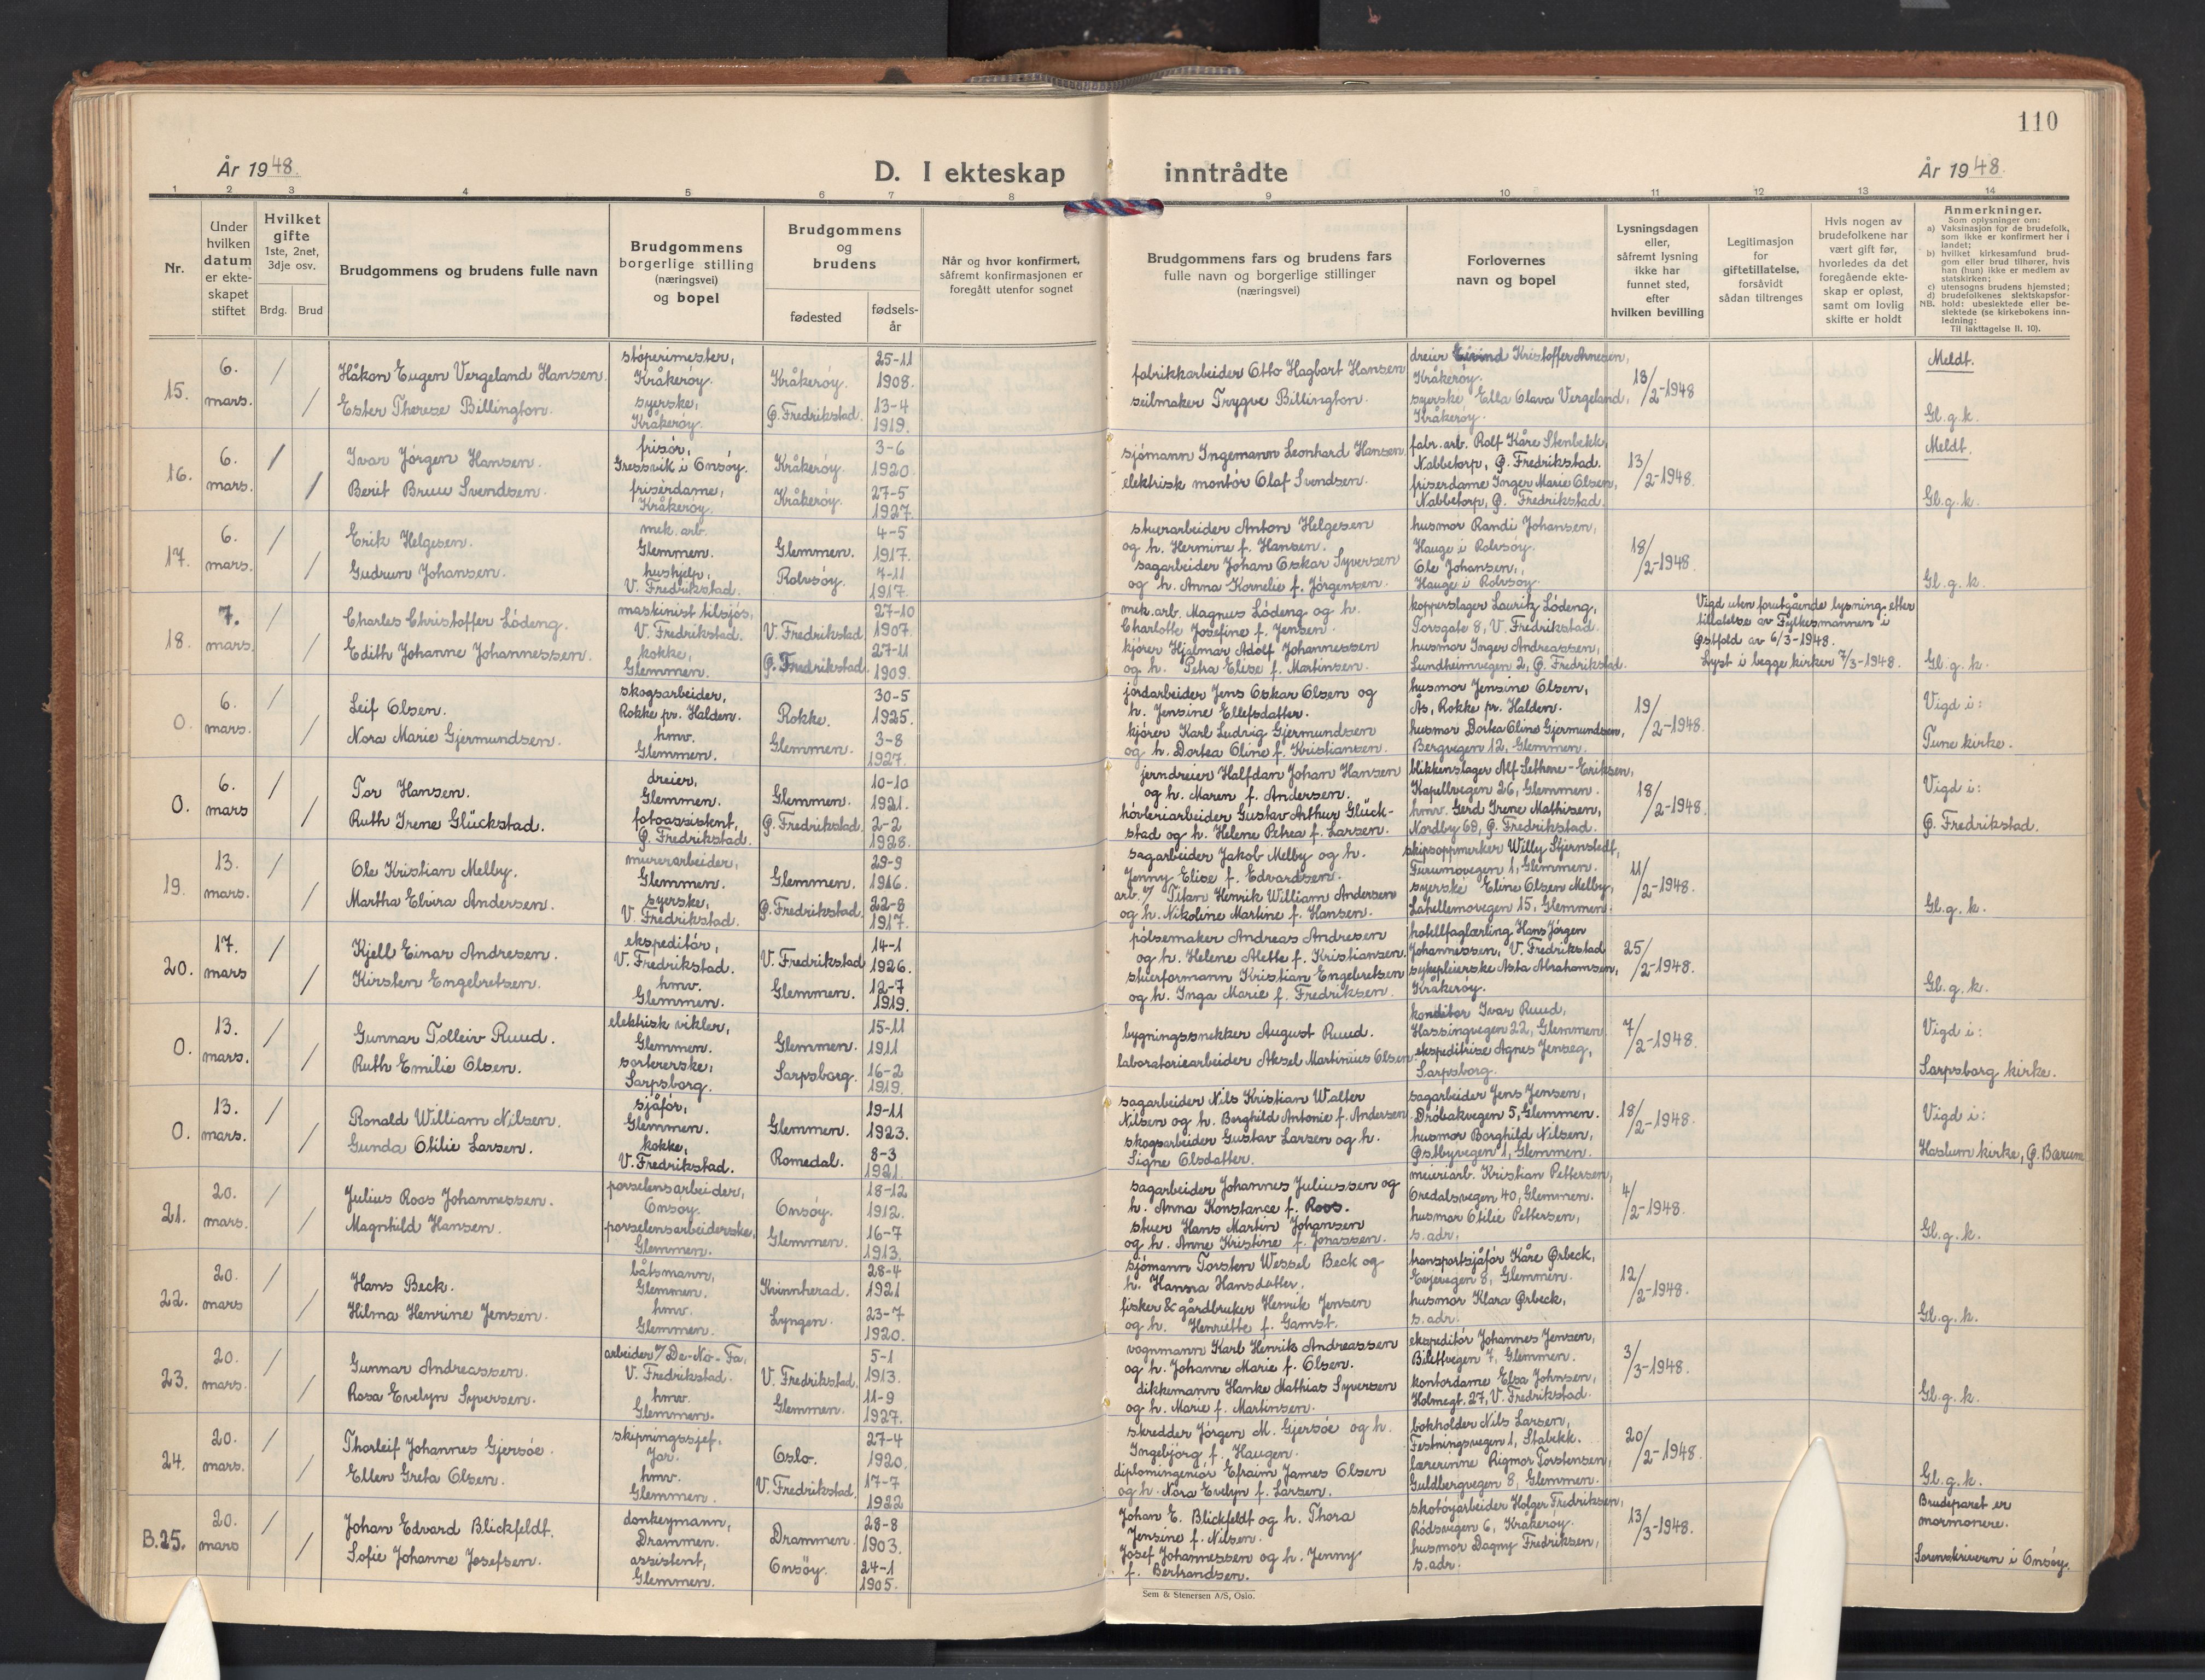 110
År 1948.
D. I ekteskap inntrådte
År 1948.
1 2 3 4 5 6 7 8 9 10 11 12 13 14
Nr.
Under hvilken datum er ekteskapet stiftet
Hvilket gifte 1ste, 2net, 3dje osv.
Brdg. Brud
Brudgommens og brudens fulle navn
Brudgommens borgerlige stilling (næringsvei) og bopel
Brudgommens og brudens
fødested
fødselsår
Når og hvor konfirmert, såfremt konfirmasjonen er foregått utenfor sognet
Brudgommens fars og brudens fars fulle navn og borgerlige stillinger (næringsvei)
Forlovernes navn og bopel
Lysningsdagen eller, såfremt lysning ikke har funnet sted, efter hvilken bevilling
Legitimasjon for giftetillatelse, forsåvidt sådan tiltrenges
Hvis nogen av brudefolkene har vært gift før, hvorledes da det foregående ekteskap er opløst, samt om lovlig skifte er holdt
Anmerkninger.
Som oplysninger om:
a) Vaksinasjon for de brudefolk, som ikke er konfirmert her i landet;
b) hvilket kirkesamfund brudgom eller brud tilhører, hvis han (hun) ikke er medlem av statskirken;
c) utensogns brudens hjemsted;
d) brudefolkenes slektskapsforhold: ubeslektede eller beslektede (se kirkebokens innledning:
NB. Til iakttagelse II. 10).
15. 6. mars. / /
Håkon Eugen Vergeland Hansen.
Ester Therese Billington.
støperimester, Kråkerøy.
syerske, Kråkerøy.
Kråkerøy. 25-11 1908.
Ø. Fredrikstad. 13-4 1919.
fabrikkarbeider Otto Hagbart Hansen
seilmaker Trygve Billington.
dreier Eivind Kristoffer Arnesen, Kråkerøy.
syerske Ella Olava Vergeland, Kråkerøy.
18/2-1948
Meldt.
Gl. g. k.
16. 6. mars. / /
Ivar Jörgen Hansen.
Berit Bruu Svendsen.
frisør, Gressvik i Onsøy.
frisérdame, Kråkerøy.
Kråkerøy. 3-6 1920
Kråkerøy. 27-5 1927.
sjømann Ingemann Leonhard Hansen.
elektrisk montör Olaf Svendsen.
fabr. arb. Rolf Kåre Stenbekk, Nabbetorp, Ø. Fredrikstad.
frisérdame Inger Marie Olsen, Nabbetorp, Ø. Fredrikstad.
13/2-1948.
Meldt.
Gl. g. k.
17. 6. mars. / /
Erik Helgesen.
Gudrun Johansen.
mek. arb. Glemmen.
hushjelp, V. Fredrikstad.
Glemmen. 4-5 1917.
Rolvsøy. 7-11 1917.
stuerarbeider Anton Helgesen og h. Hermine f. Hansen.
sagarbeider Johan Oskar Syversen og h. Anna Kornelie f. Jörgensen.
husmor Randi Johansen, Hauge i Rolvsøy.
Ole Johansen, Hauge i Rolvsøy.
18/2-1948.
Gl. g. k.
18. 7. mars. / /
Charles Christoffer Lödeng.
Edith Johanne Johannessen.
maskinist tilsjøs, V. Fredrikstad.
kokke, Glemmen.
V. Fredrikstad. 27-10 1907.
Ø. Fredrikstad. 27-11 1909.
mek. arb. Magnus Lödeng og h. Charlotte Josefine f. Jensen.
kjører Hjalmar Adolf Johannessen og h. Petra Elise f. Martinsen.
kopperslager Lauritz Lödeng, Torsgate 8, V. Fredrikstad.
husmor Inger Andreassen, Lundheimvegen 2, Ø. Fredrikstad.
Vigd uten forutgående lysning etter tillatelse av Fylkesmannen i Østfold av 6/3-1948.
Lyst i begge kirker 7/3-1948.
Gl. g. k.
0. 6. mars. / /
Leif Olsen.
Nora Marie Gjermundsen.
skogsarbeider, Rokke pr. Halden.
hmv. Glemmen.
Rokke. 30-5 1925.
Glemmen. 3-8 1927.
jordarbeider Jens Oskar Olsen og h. Jensine Ellefsdatter.
kjører Karl Ludvig Gjermundsen og h. Dortea Oline f. Kristiansen.
husmor Jensine Olsen, Ås, Rokke pr. Halden.
husmor Dortea Oline Gjermundsen, Bergvegen 12, Glemmen.
19/2-1948.
Vigd i:
Tune kirke.
0. 6. mars / /
Tor Hansen.
Ruth Irene Glückstad.
dreier, Glemmen.
fotoassistent, Ø. Fredrikstad.
Glemmen. 10-10 1921.
Ø. Fredrikstad. 2-2 1928.
jerndreier Halfdan Johan Hansen og h. Maren f. Andersen.
høvleriarbeider Gustav Arthur Glückstad og h. Helene Petrea f. Larsen.
blikkenslager Alf Sethne-Eriksen, Kapellvegen 26, Glemmen.
hmv. Gerd Irene Mathisen, Nordby 69, Ø. Fredrikstad.
18/2-1948.
Vigd i:
Ø. Fredrikstad.
19. 13. mars. / /
Ole Kristian Melby.
Martha Elvira Andersen.
murerarbeider, Glemmen.
syerske, V. Fredrikstad.
Glemmen. 29-9 1916.
Ø. Fredrikstad. 22-8 1917.
sagarbeider Jakob Melby og h. Jenny Elise f. Edvardsen.
arb. v/ Titan Henrik William Andersen og h. Nikoline Martine f. Hansen.
skipsoppmerker Willy Stjernstedt, Furumovegen 1, Glemmen.
syerske Eline Olsen Melby, Labellemovegen 15, Glemmen.
11/2-1948.
Gl. g. k.
20. 17. mars / /
Kjell Einar Andresen.
Kirsten Engebretsen.
ekspeditør, V. Fredrikstad.
hmv. Glemmen.
V. Fredrikstad 14-1 1926.
Glemmen. 12-7 1919.
pølsemaker Andreas Andresen og h. Helene Alette f. Kristiansen.
stuerformann Kristian Engebretsen og h. Inga Marie f. Fredriksen.
hotellfaglærling Hans Jörgen Johannessen, V. Fredrikstad
sykepleierske Asta Abrahamsen, Kråkerøy.
25/2-1948.
Gl. g. k.
0. 13. mars. / /
Gunnar Tolleiv Ruud.
Ruth Emilie Olsen.
elektrisk vikler, Glemmen.
sortererske, Sarpsborg.
Glemmen. 15-11 1911
Sarpsborg. 16-2 1919.
bygningssnekker August Ruud.
laboratoriearbeider Aksel Martinius Olsen.
konditor Ivar Ruud, Hassingvegen 22, Glemmen.
ekspeditrise Agnes Jenseg, Sarpsborg.
7/2-1948.
Vigd i:
Sarpsborg kirke.
0. 13. mars. / /
Ronald William Nilsen.
Gunda Otilie Larsen.
sjåfør, Glemmen.
kokke, V. Fredrikstad.
Glemmen. 19-11 1923.
Romedal. 8-3 1921.
sagarbeider Nils Kristian Walter Nilsen og h. Borghild Antonie f. Andersen
skogsarbeider Gustav Larsen og h. Signe Olsdatter.
sagarbeider Jens Jensen, Drøbakvegen 5, Glemmen.
husmor Borghild Nilsen, Østbyvegen 1, Glemmen.
18/2-1948.
Vigd i:
Haslum kirke, Ø. Bærum
21. 20. mars. / /
Julius Roos Johannessen.
Magnhild Hansen.
porselensarbeider, Onsøy.
porselensarbeiderske, Glemmen.
Onsøy. 18-12 1912.
Glemmen. 16-7 1913.
sagarbeider Johannes Juliussen og h. Anna Konstance f. Roos.
stuer Hans Martin Johansen og h. Anne Kristine f. Jonassen.
meieriarb. Kristian Pettersen, Oredalsvegen 40, Glemmen.
husmor Otilie Pettersen, s. adr.
4/2-1948.
Gl. g. k.
22. 20. mars / /
Hans Beck.
Hilma Henrine Jensen.
båtsmann, Glemmen.
hmv. Glemmen.
Kvinnherad. 28-4 1921
Lyngen. 23-7 1920.
sjømann Torsten Wessel Beck og h. Hanna Hansdatter.
fisker & gårdbruker Henrik Jensen og h. Henriette f. Gamst.
transportsjåfør Kåre Ørbeck, Evjevegen 8, Glemmen.
husmor Klara Ørbeck, s. adr.
12/2-1948.
Gl. g. k.
23. 20. mars. / /
Gunnar Andreassen.
Rosa Evelyn Syversen.
arbeider v/ De-No-Fa, V. Fredrikstad.
hmv. Glemmen.
V. Fredrikstad. 5-1 1913.
Glemmen. 11-9 1927.
vognmann Karl Henrik Andreassen og h. Johanne Marie f. Olsen.
dikkemann Hanke Mathias Syversen og h. Marie f. Martinsen.
ekspeditør Johannes Jensen, Bilettvegen 7, Glemmen.
kontordame Elsa Johnsen, Holmegt. 27, V. Fredrikstad.
3/3-1948.
Gl. g. k.
24. 20. mars. / /
Thorleif Johannes Gjersøe.
Ellen Greta Olsen.
skipningssjef, Jar.
hmv. Glemmen.
Oslo. 27-4 1920.
V. Fredrikstad. 17-7 1922
skredder Jörgen M. Gjersøe og h. Ingebjørg, f. Haugen.
diplomingeniør Efraim James Olsen og h. Nora Evelyn f. Larsen.
bokholder Nils Larsen, Festningsvegen 1, Stabekk.
lærerinne Rigmor Torstensen, Guldbergvegen 8, Glemmen.
20/2-1948.
Gl. g. k.
B.25. 20. mars / /
Johan Edvard Blickfeldt.
Sofie Johanne Josefsen.
donkeymann, Drammen.
assistent, Glemmen.
Drammen. 28-8 1903.
Onsøy. 24-1 1905.
Johan E. Blickfeldt og h. Thora Jensine f. Nilsen.
Josef Johannessen og h. Jenny f. Bertrandsen.
skotøyarbeider Holger Fredriksen, Rødsvegen 6, Kråkerøy.
husmor Dagny Fredriksen, s. adr.
13/3-1948.
Brudeparet er mormonere.
Sorenskriveren i Onsøy.
Sem & Stenersen A/S, Oslo.